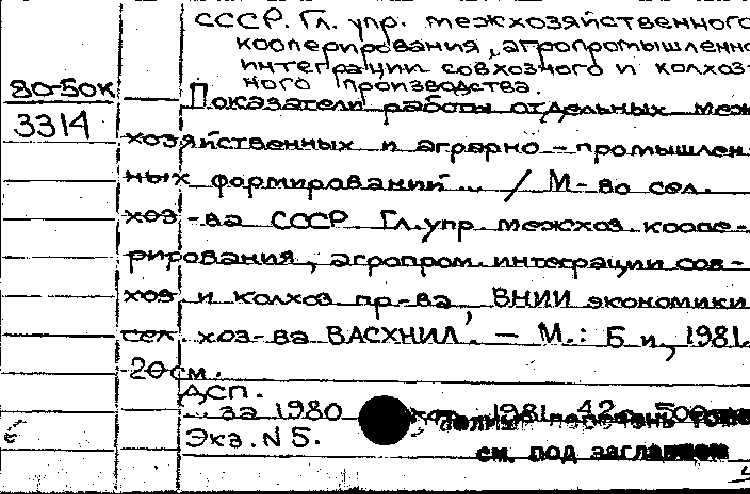 СССР. Гл. упр. межхозяйственного
кооперирования, агропромышленно
интеграции совхозного и колхоз-
ного производства.
80-50к
Показатели работы отдельных меж
3314
хозяйственных и аграрно-промышлен
ных формирований ... / М-во сел.
хоз-ва СССР. Гл. упр. межхоз. коопе-
рирования, агропром. интеграции сов-
хоз. и колхоз. пр-ва, ВНИИ экономики
сел. хоз-ва ВАСХНИЛ. - М.: Б. и., 1981.
-20 см.
ДСП.
... за 1980 1981. 42 с. 500
полный перечень томов
Экз. N 5.
см. под заглавием